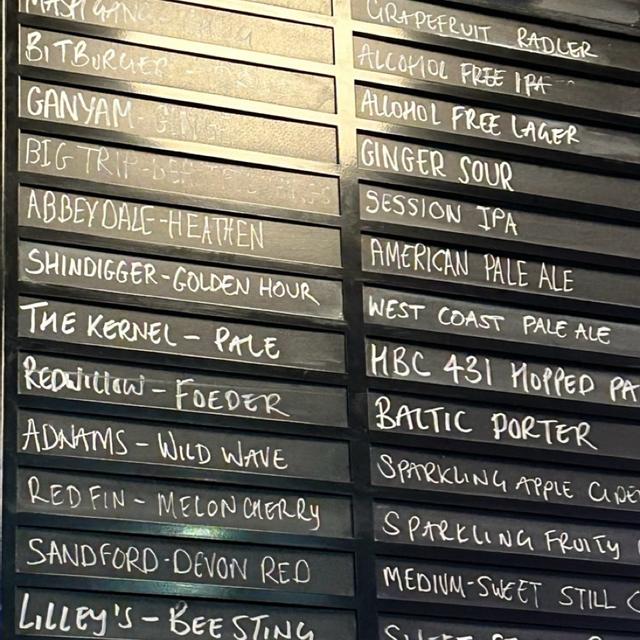 GRAPEFRUIT RADLER
MASH GANG
ALCOHOL FREE IPA
BITBURGER
ALCOHOL FREE LAGER
GANYAM -
GINGER SOUR
BIG TRIP -
SESSION IPA
ABBEYDALE - HEATHEN
AMERICAN PALE ALE
SHINDIGGER - GOLDEN HOUR
WEST COAST PALE ALE
THE KERNEL - PALE
HBC 431 HOPPED PA
REDWILLOW - FOEDER
BALTIC PORTER
ADNAMS - WILD WAVE
SPARKLING APPLE CIDE
RED FIN - MELON CHERRY
SPARKLING FRUITY
SANDFORD - DEVON RED
MEDIUM-SWEET STILL C
LILLEY'S - BEE STING
SWEET